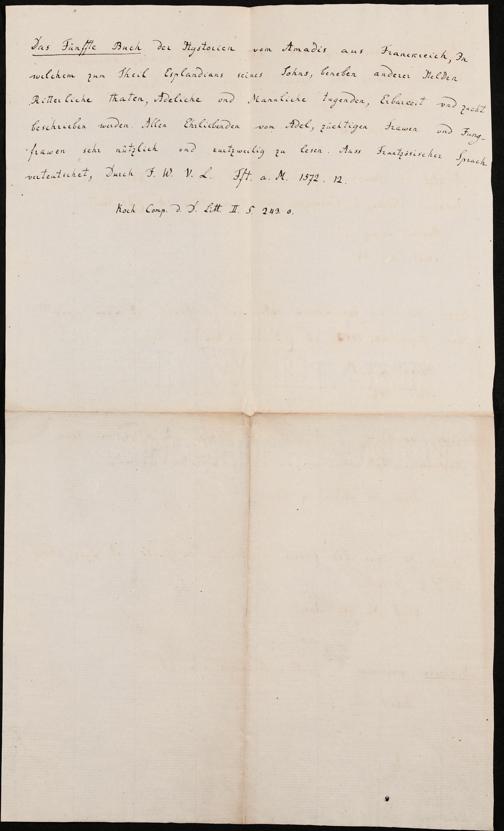 Das Fünffte Buch der Hystorien vom Amadis aus Franckreich, In
welchem zum Theil Esplandians seines Sohns, beneben anderer Helden
Ritterliche thaten, Adeliche vnd Mannliche tugenden, Erbarceit vnd zucht
beschrieben werden. Allen Ehrliebenden vom Adel, züchtigen Frawen vnd Jung-
frawen sehr nützlich vnd curtzweilig zu lesen. Auss Frantzösischer Sprach
verteutschet, Durch J. W. V. L. Fft. a. M. 1572. 12.
Koch Comp. d. D. Litt. II. S. 243. o.